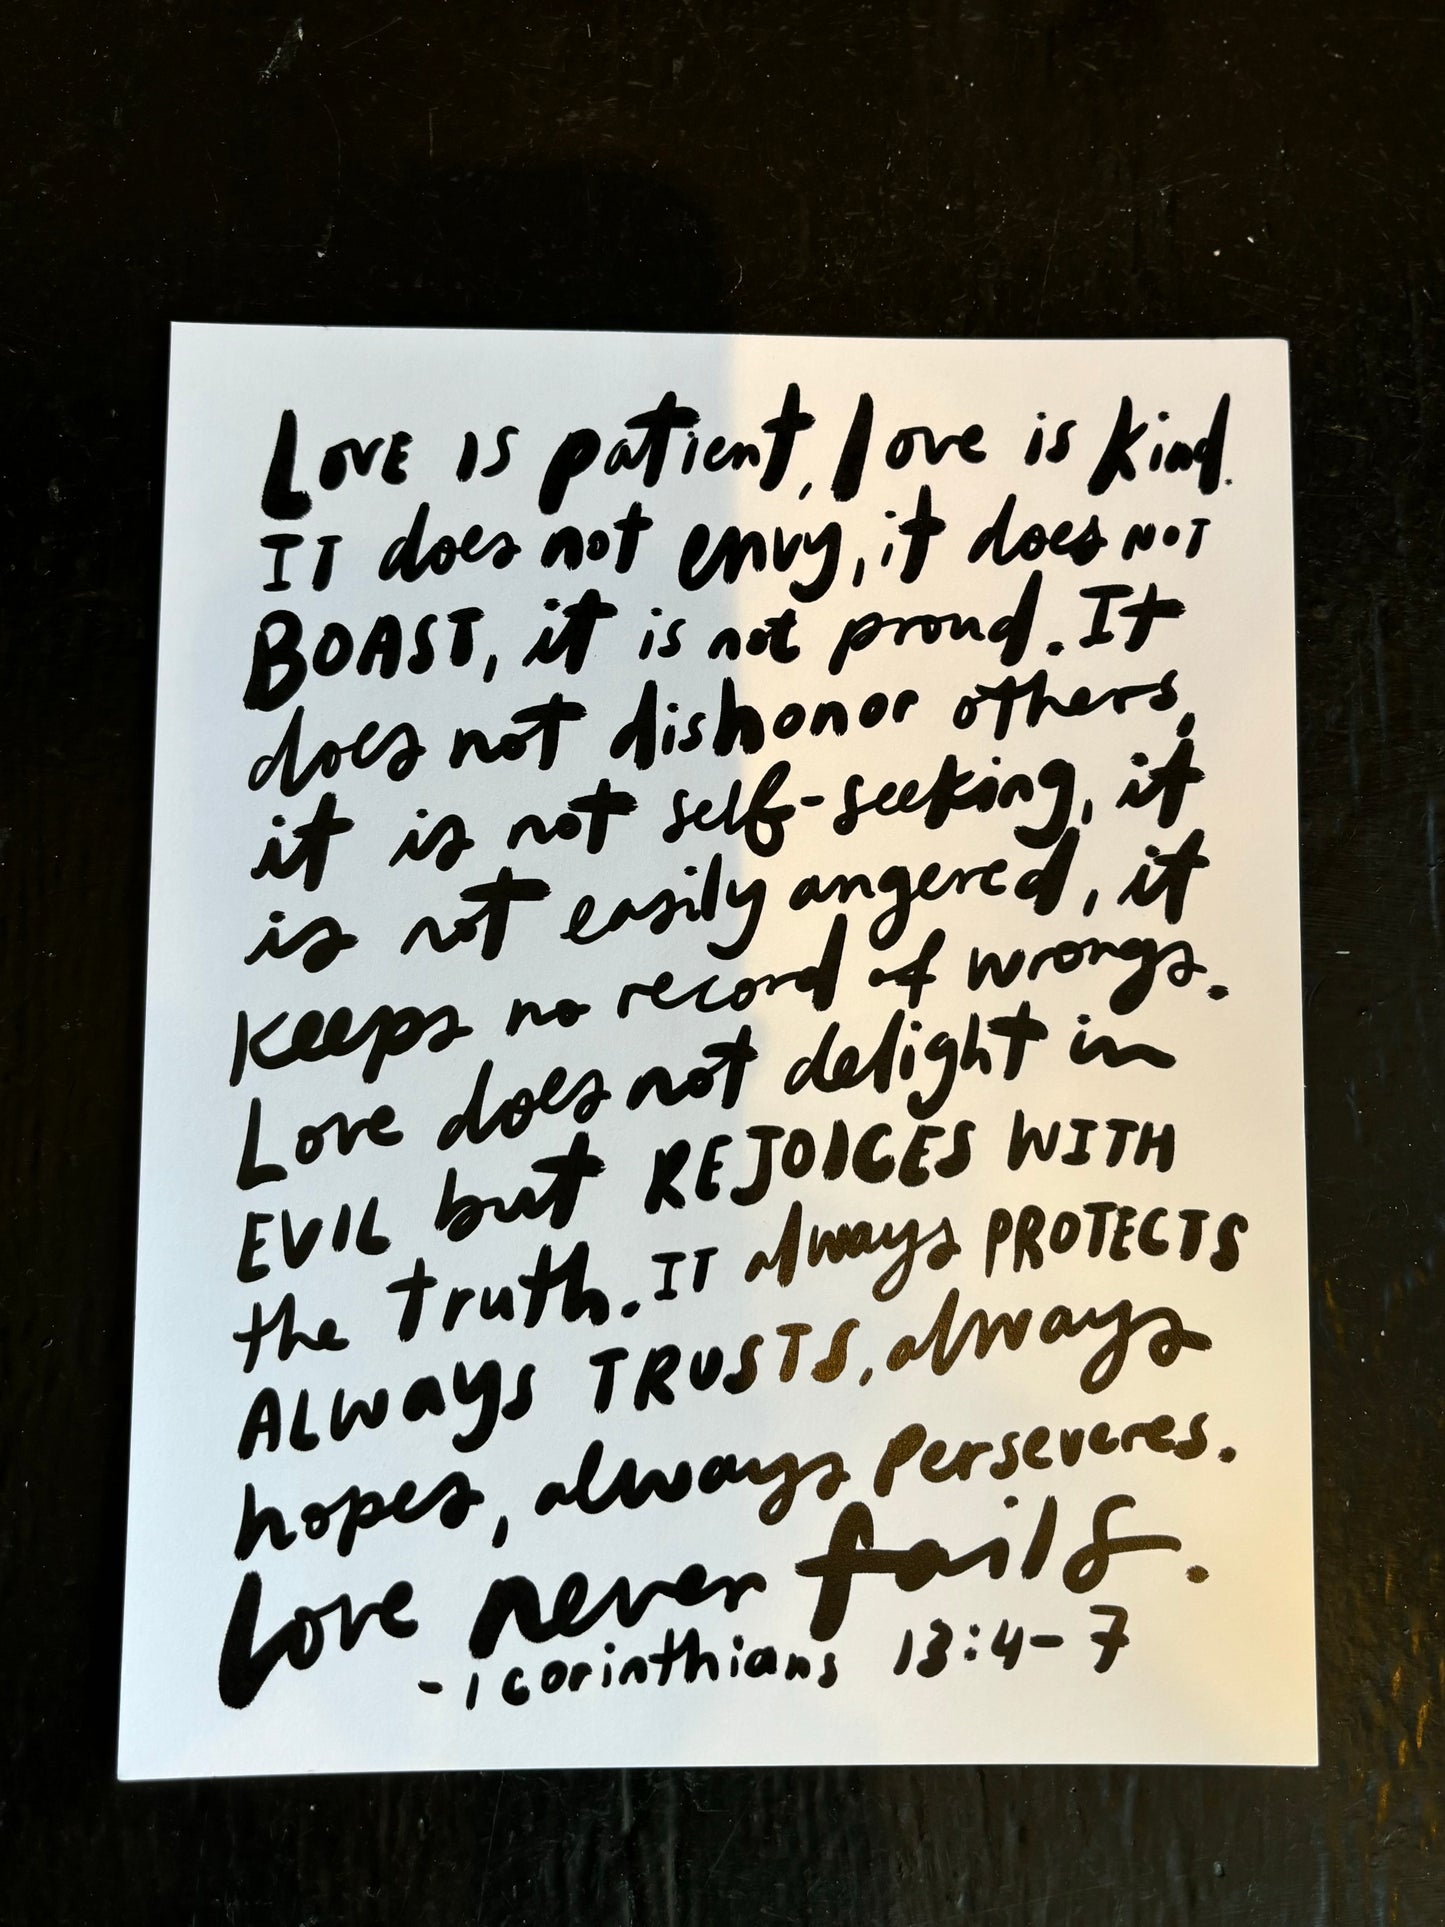 Love is patient, love is kind.
It does not envy, it does not
BOAST, it is not proud. It
does not dishonor others,
it is not self-seeking, it
is not easily angered, it
keeps no record of wrongs.
Love does not delight in
EVIL but REJOICES WITH
the truth. IT always PROTECTS
ALways TRUSTS, always
hopes, always perseveres.
Love never fails.
-1 corinthians 13:4-7